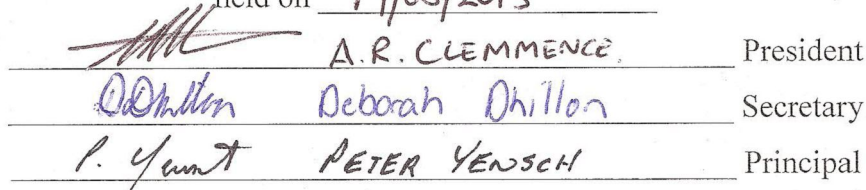 held on
A.R. CLEMMENCE. President
DDhillon Deborah Dhillon Secretary
P. Yensch PETER YENSCH Principal